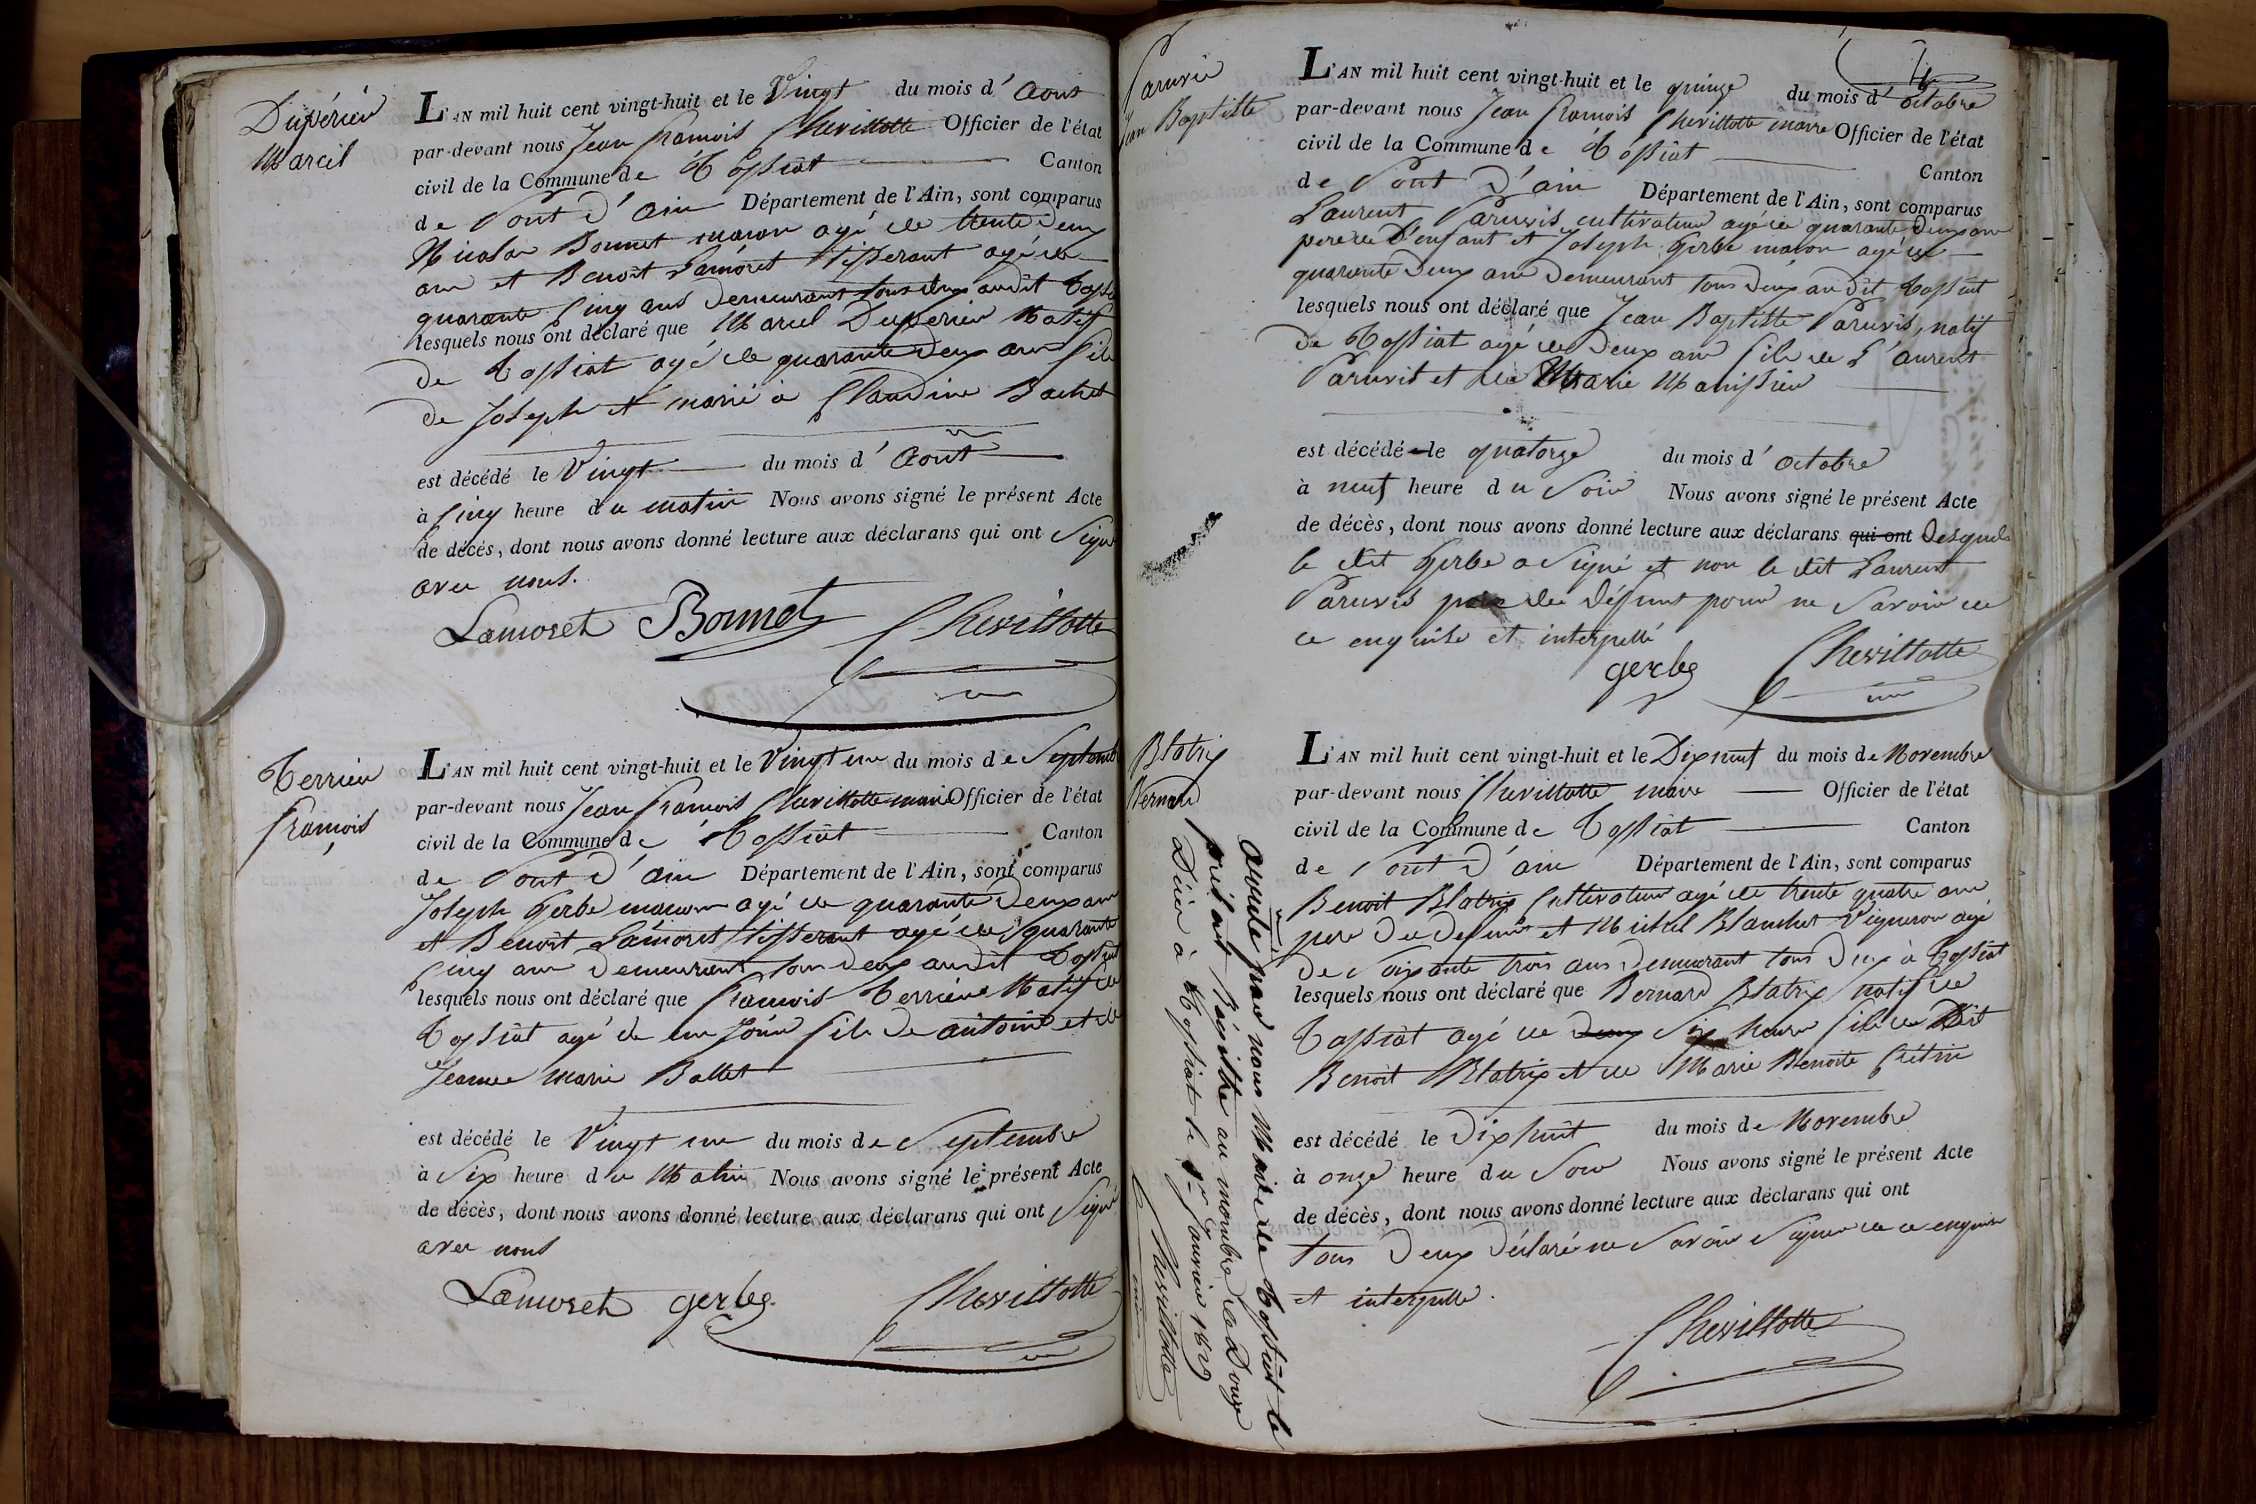 Dupérieu
Marcel
L'AN mil huit cent vingt-huit et le Vingt du mois d'Aoust
par-devant nous Jean francois Chevillotte Officier de l'état
civil de la Commune de Tossiat Canton
de Pont d'ain Département de l'Ain, sont comparus
Nicolas Bonnet macon agé de trente deux
ans et Benoit Lamoret tisserant agé de
quarante cinq ans demeurant tous deux audit Tossiat
lesquels nous ont déclaré que Marcel Duperieu Natif
de Tossiat agé de quarante deux ans fils
de Joseph et marié a Claudine Bachet
est décédé le Vingt du mois d'Août
à cinq heure du matin Nous avons signé le présent Acte
de décès, dont nous avons donné lecture aux déclarans qui ont Signé
avec nous.
Lamoret Bonnet Chevillotte
Terrieu
francois
L'AN mil huit cent vingt-huit et le Vingt un du mois de Septembre
par-devant nous Jean francois Chevillotte maire Officier de l'état
civil de la Commune de Tossiat Canton
de Pont d'ain Département de l'Ain, sont comparus
Joseph Gerbe macon agé de quarante deux ans
et Benoit Lamoret tisserant agé de quarante
cinq ans demeurant tous deux audit Tossiat
lesquels nous ont déclaré que francois Terrieu Natif de
Tossiat agé de un Jour fils de antoine et de
Jeanne Marie Ballet
est décédé le Vingt un du mois de Septembre
à Six heure du Matin Nous avons signé le présent Acte
de décès, dont nous avons donné lecture aux déclarans qui ont Signé
avec nous
Lamoret gerbe Chevillotte
Paruvis
Jean Baptiste
L'AN mil huit cent vingt-huit et le quinze du mois d'octobre
par-devant nous Jean francois Chevillotte maire Officier de l'état
civil de la Commune de Tossiat Canton
de Pont d'ain Département de l'Ain, sont comparus
Laurent Paruvis cultivateur agé de quarante deux ans
pere de l'enfant et Joseph Gerbe macon agé de
quarante deux ans demeurant tous deux au dit Tossiat
lesquels nous ont déclaré que Jean Baptiste Paruvis, natif
de Tossiat agé de deux ans fils de Laurent
Paruvis et de Marie Manissieu
est décédé le quatorze du mois d'octobre
à neuf heure du Soir Nous avons signé le présent Acte
de décès, dont nous avons donné lecture aux déclarans qui ont Desquels
le dit Gerbe a Signé et non le dit Laurent
Paruvis pere du Défunt pour ne Savoir de
ce enquise et interpellé
gerbe Chevillotte
Blatrix
Bernard
L'AN mil huit cent vingt-huit et le Dix neuf du mois de Novembre
par-devant nous Chevillotte maire Officier de l'état
civil de la Commune de Tossiat Canton
de Pont d'ain Département de l'Ain, sont comparus
Benoit Blatrix Cultivateur agé de trente quatre ans
pere du defunt et Michel Blanchet Vigneron agé
de Soixante trois ans demeurant tous deux à Tossiat
lesquels nous ont déclaré que Bernard Blatrix natif de
Tossiat agé de deux Six heures fils de Dit
Benoit Blatrix et de Marie Benoite Crétin
est décédé le Dix huit du mois de Novembre
à onze heure du Soir Nous avons signé le présent Acte
de décès, dont nous avons donné lecture aux déclarans qui ont
tous deux déclaré ne Savoir Signer de ce enquise
et interpelle.
Chevillotte
Arrete par nous Maire de Tossiat le
présent Régistre au nombre de Douze
Décès à Tossiat le 1er Janvier 1829
Chevillotte